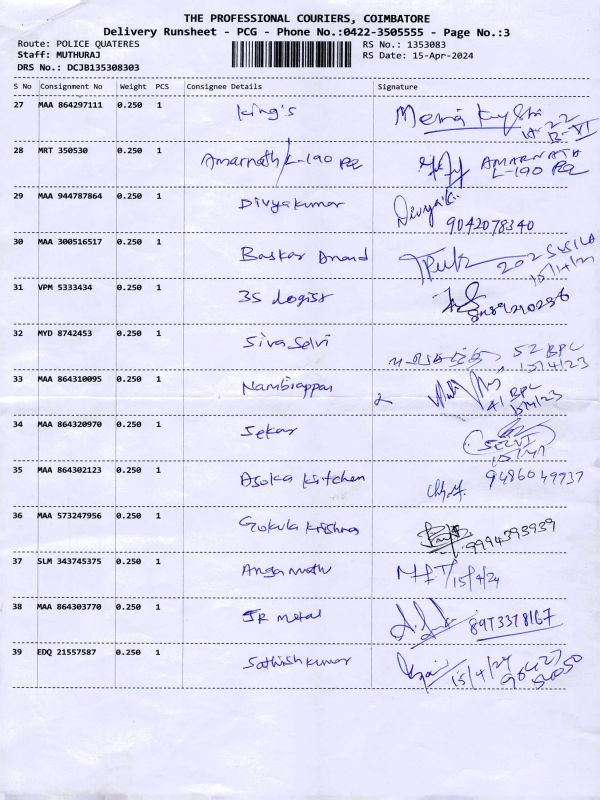 THE PROFESSIONAL COURIERS, COIMBATORE
Delivery Runsheet - PCG - Phone No.:0422-3505555 - Page No.:3
Route: POLICE QUATERES RS No.: 1353083
Staff: MUTHURAJ RS Date: 15-Apr-2024
DRS No.: DCJB135308303
S No Consignment No Weight PCS Consignee Details Signature
27 MAA 864297111 0.250 1 King's
28 MRT 350530 0.250 1 Amarnath/L-190 PQ AMARNATH
L-190 PQ
29 MAA 944787864 0.250 1 Divyakumar Divyak
9042078340
30 MAA 300516517 0.250 1 Baskar Anand 202
31 VPM 5333434 0.250 1 3S Logist
32 MYD 8742453 0.250 1 Siva Selvi 52 BPC
15/4/23
33 MAA 864310095 0.250 1 Nambirappan 41 BPC
34 MAA 864320970 0.250 1 Sekar SELVI
35 MAA 864302123 0.250 1 Asoka Kitchen 9486049937
36 MAA 573247956 0.250 1 Gokula Krishna 9994393939
37 SLM 343745375 0.250 1 15/4/24
38 MAA 864303770 0.250 1 JR Metal 8973378167
39 EDQ 21557587 0.250 1 Sathish kumar 15/4/24